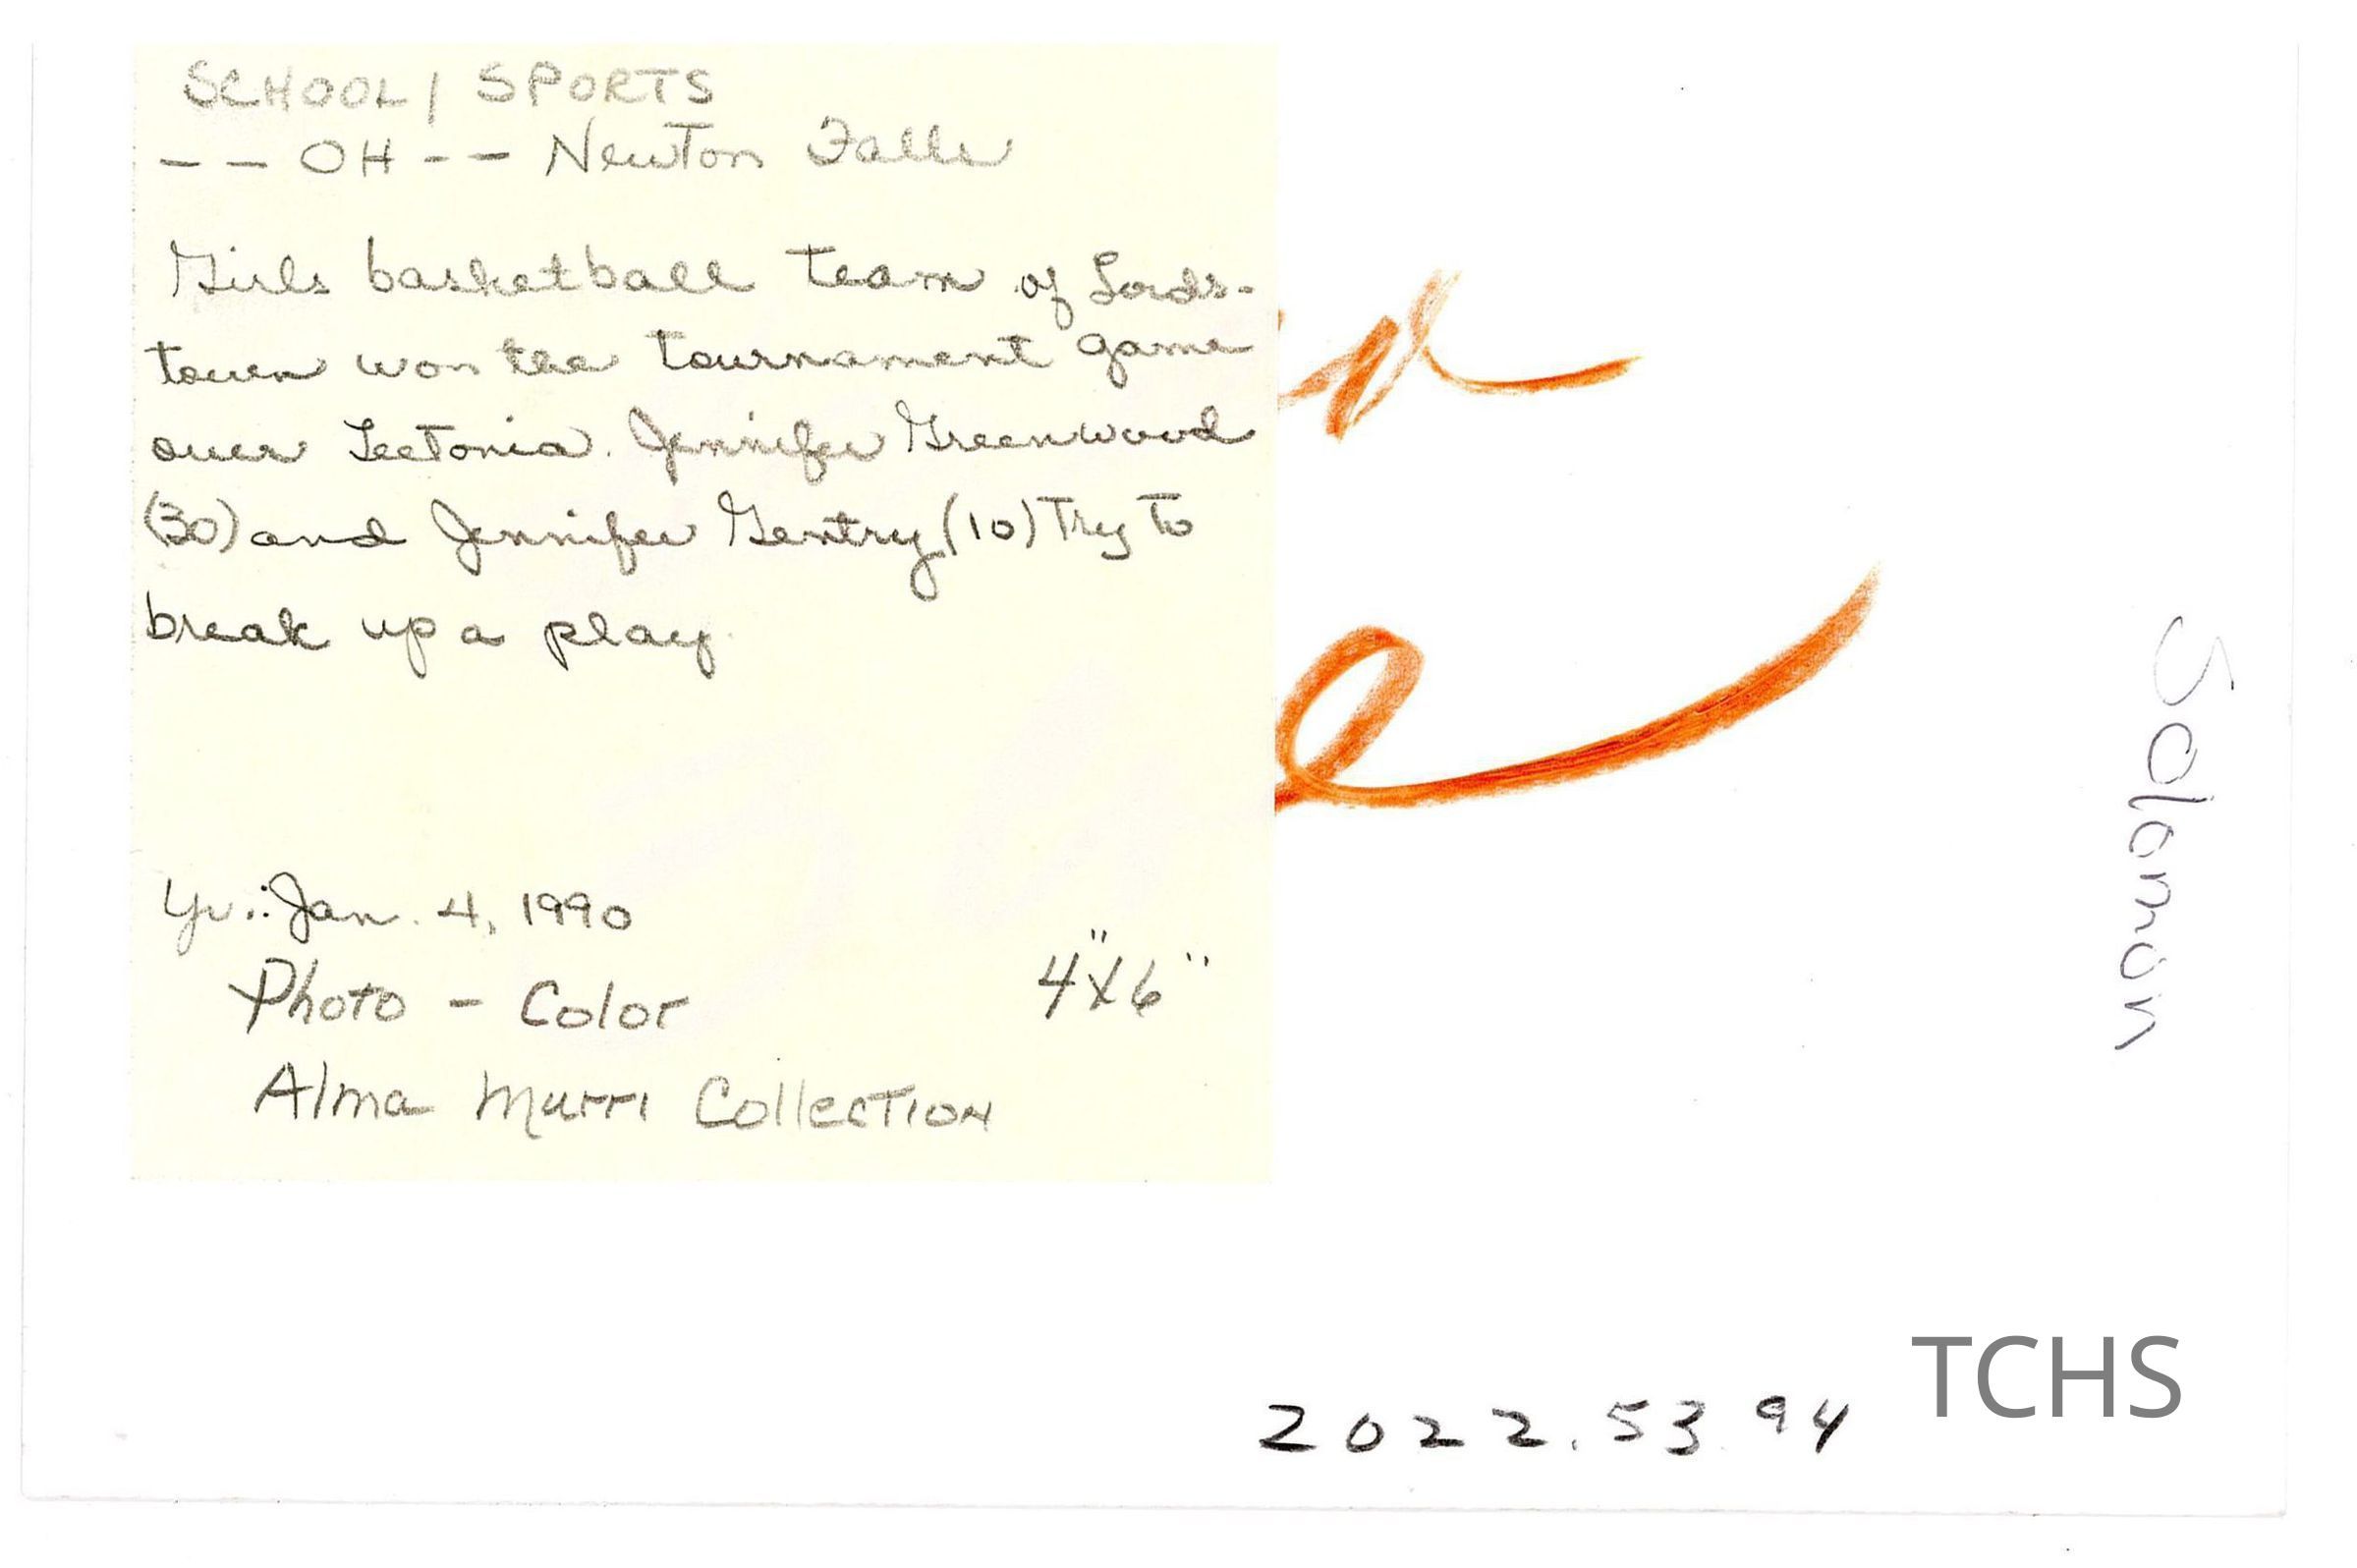 SCHOOL / SPORTS
-- OH -- Newton Falls
Girls basketball team of Lords-
town won the tournament game
over Leetonia. Jennifer Greenwood
(30) and Jennifer Gentry (10) Try to
break up a play
Yr.: Jan. 4, 1990
Photo - Color 4"X6"
Alma Murri Collection
Solomon
TCHS
2022.53.94